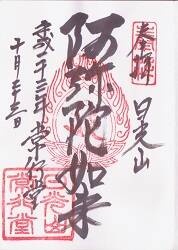 奉拝
日光山
阿弥陀如来
常行堂
平成二十三年
十月二十三日
日光山
常行堂